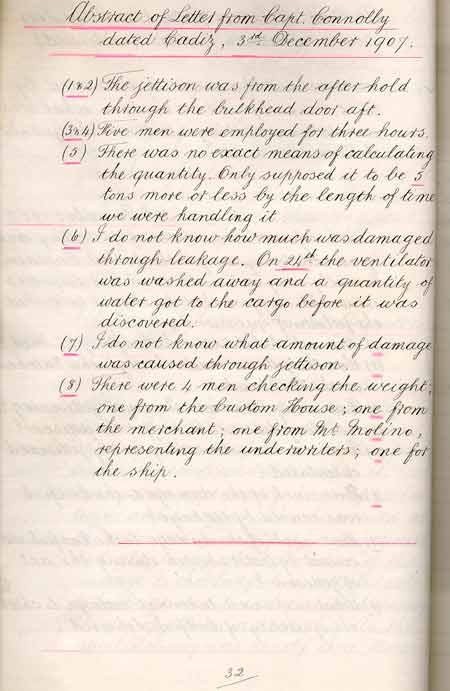 Abstract of Letter from Capt. Connolly
dated Cadiz, 3rd December 1907.
(1&2) The jettison was from the after hold
through the bulkhead door aft.
(3&4) Five men were employed for three hours.
(5) There was no exact means of calculating
the quantity. Only supposed it to be 5
tons more or less by the length of time
we were handling it
(6) I do not know how much was damaged
through leakage. On 24th the ventilator
was washed away and a quantity of
water got to the cargo before it was
discovered.
(7) I do not know what amount of damage
was caused through jettison.
(8) There were 4 men checking the weight;
one from the Custom House; one from
the merchant; one from Mr Molino,
representing the underwriters; one for
the ship.
32